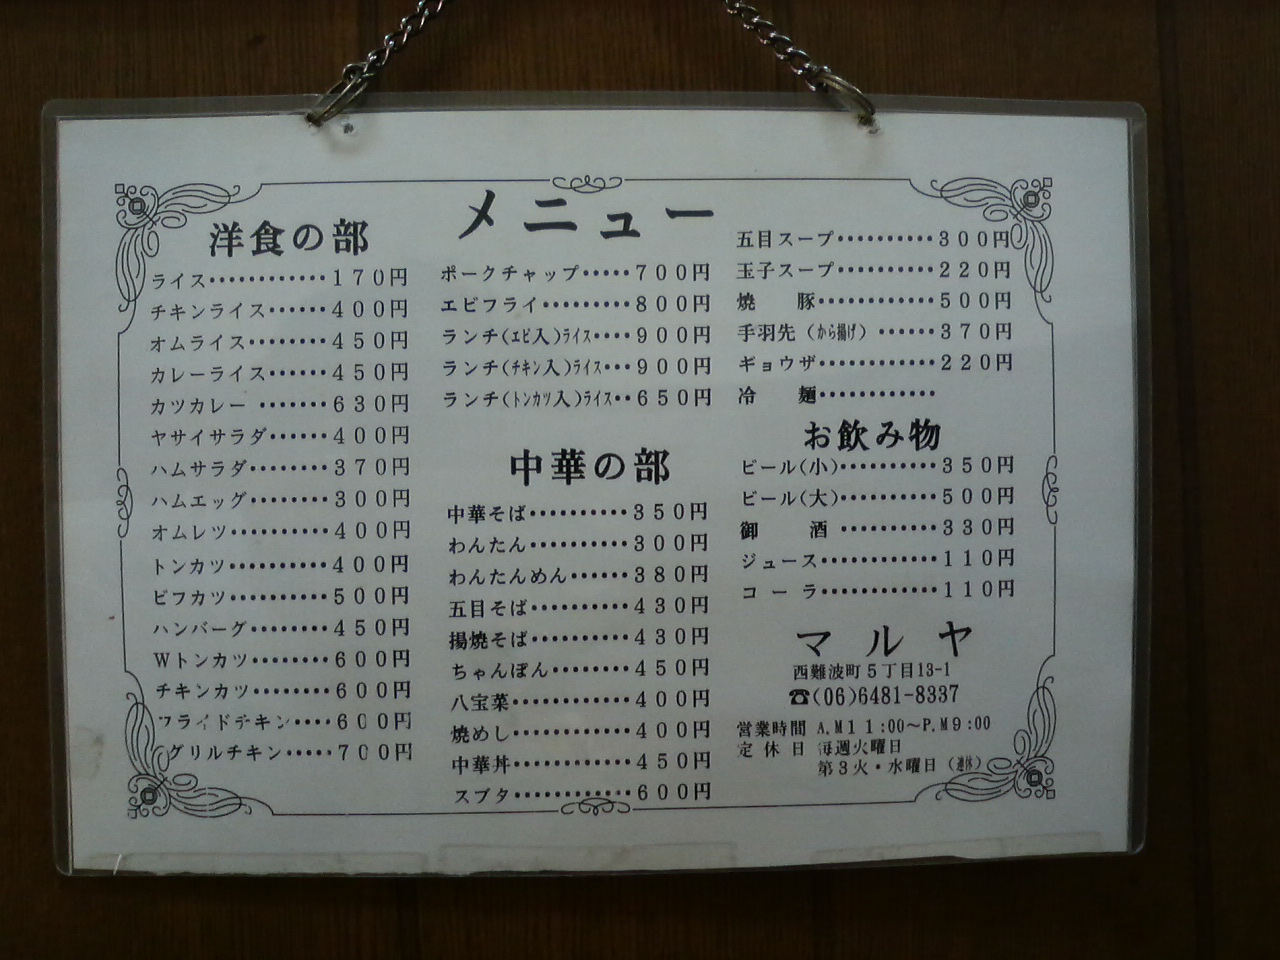 メニュー
洋食の部
ライス････････････170円
チキンライス･･････400円
オムライス････････450円
カレーライス･･････450円
カツカレー ･･･････630円
ヤサイサラダ･･････400円
ハムサラダ････････370円
ハムエッグ････････300円
オムレツ･･････････400円
トンカツ･･････････400円
ビフカツ･･････････500円
ハンバーグ････････450円
Wトンカツ････････600円
チキンカツ････････600円
フライドチキン････600円
グリルチキン･････700円
ポークチャップ･････700円
エビフライ･････････800円
ランチ(エビ入)ライス････900円
ランチ(チキン入)ライス･･･900円
ランチ(トンカツ入)ライス･･650円
中華の部
中華そば･･････････350円
わんたん･･････････300円
わんたんめん･･････380円
五目そば･･････････430円
揚焼そば･･････････430円
ちゃんぽん････････450円
八宝菜････････････400円
焼めし････････････400円
中華丼････････････450円
スブタ････････････600円
五目スープ･･････････300円
玉子スープ･･････････220円
焼　　豚････････････500円
手羽先（から揚げ）･･････370円
ギョウザ････････････220円
冷　　麺････････････
お飲み物
ビール(小)･･････････350円
ビール(大)･･････････500円
御　　酒 ･･････････330円
ジュース････････････110円
コ ー ラ････････････110円
マルヤ
西難波町5丁目13-1
☎(06)6481-8337
営業時間 A.M11:00〜P.M9:00
定休日 毎週火曜日
第3火・水曜日（連休）